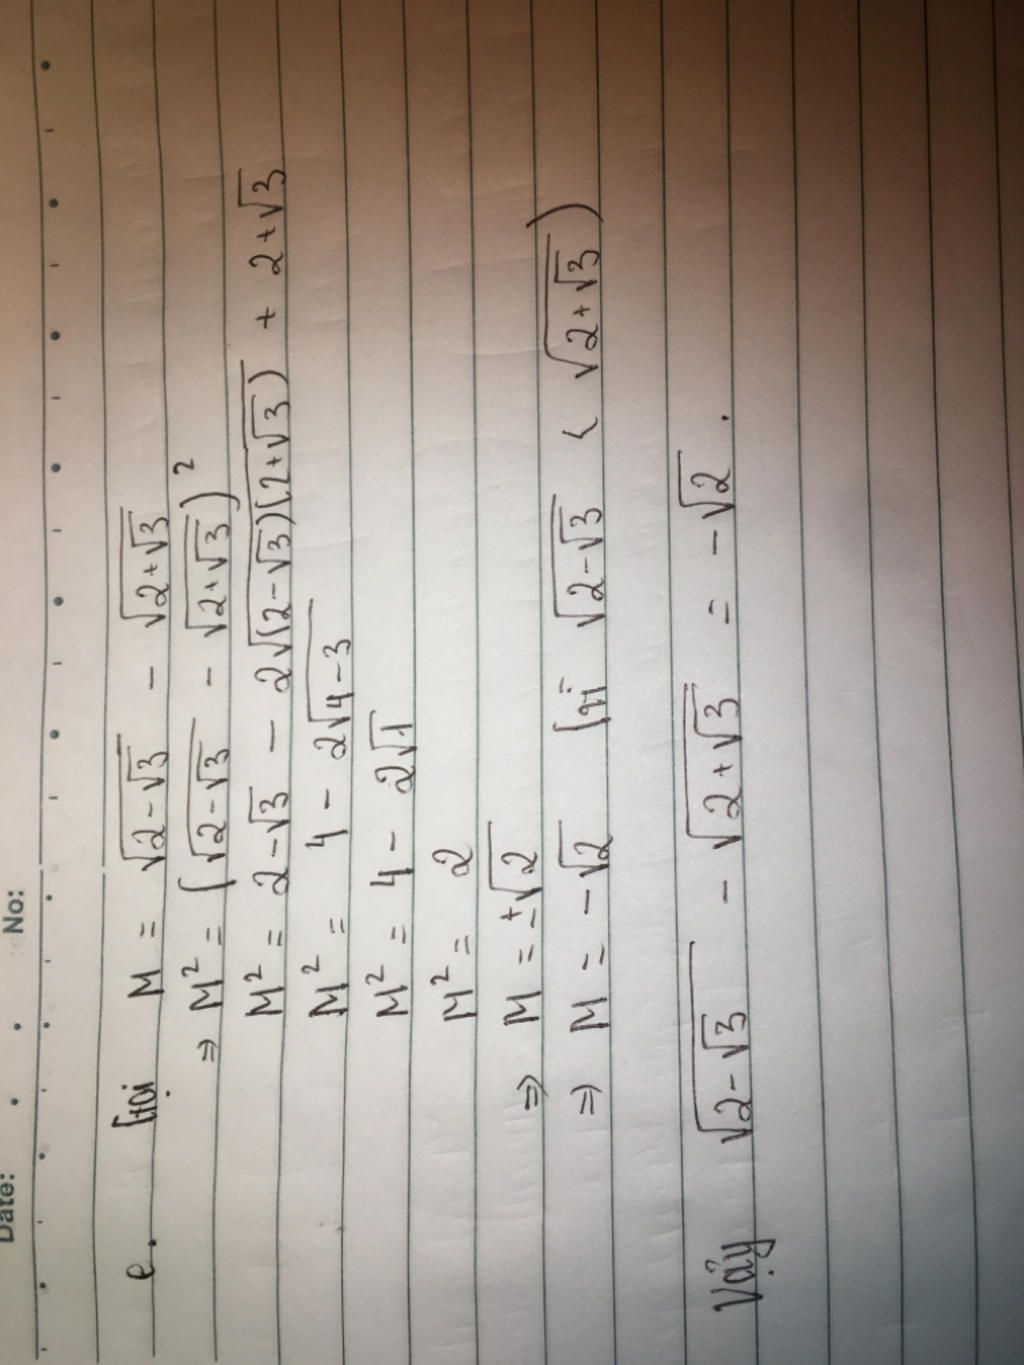 Date: No:
e. Gọi M = √(2-√3) - √(2+√3)
⇒ M² = (√(2-√3) - √(2+√3))²
M² = 2-√3 - 2√((2-√3)(2+√3)) + 2+√3
M² = 4 - 2√(4-3)
M² = 4 - 2√1
M² = 2
⇒ M = ±√2
⇒ M = -√2 (Vì √(2-√3) < √(2+√3))
Vậy √(2-√3) - √(2+√3) = -√2.